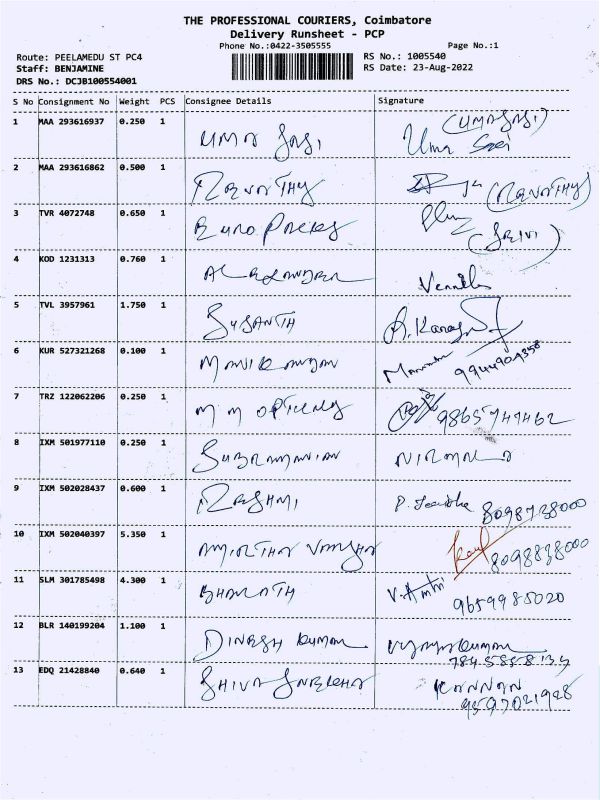 THE PROFESSIONAL COURIERS, Coimbatore
Delivery Runsheet - PCP
Phone No.:0422-3505555
Page No.:1
Route: PEELAMEDU ST PC4
RS No.: 1005540
Staff: BENJAMINE
RS Date: 23-Aug-2022
DRS No.: DCJB100554001
S No Consignment No Weight PCS Consignee Details Signature
1 MAA 293616937 0.250 1 UMA SASI Uma Sasi (UMASASI)
2 MAA 293616862 0.500 1 REVATHY (REVATHY)
3 TVR 4072748 0.650 1 EURO (SRIVI)
4 KOD 1231313 0.760 1 ALEXANDER
5 TVL 3957961 1.750 1 SUSANTH
6 KUR 527321268 0.100 1 MANIKANDAN
7 TRZ 122062206 0.250 1 M M OPTICALS 9865749462
8 IXM 501977110 0.250 1 SUBRAMANIAN NIRMALA
9 IXM 502028437 0.600 1 RESHMI 8098738000
10 IXM 502040397 5.350 1 AMIRTHA VARSHA 8098838000
11 SLM 301785498 4.300 1 BHARATH 9659985020
12 BLR 140199204 1.100 1 DINESH KUMAR
13 EDQ 21428840 0.640 1 SHIVA KANNAN